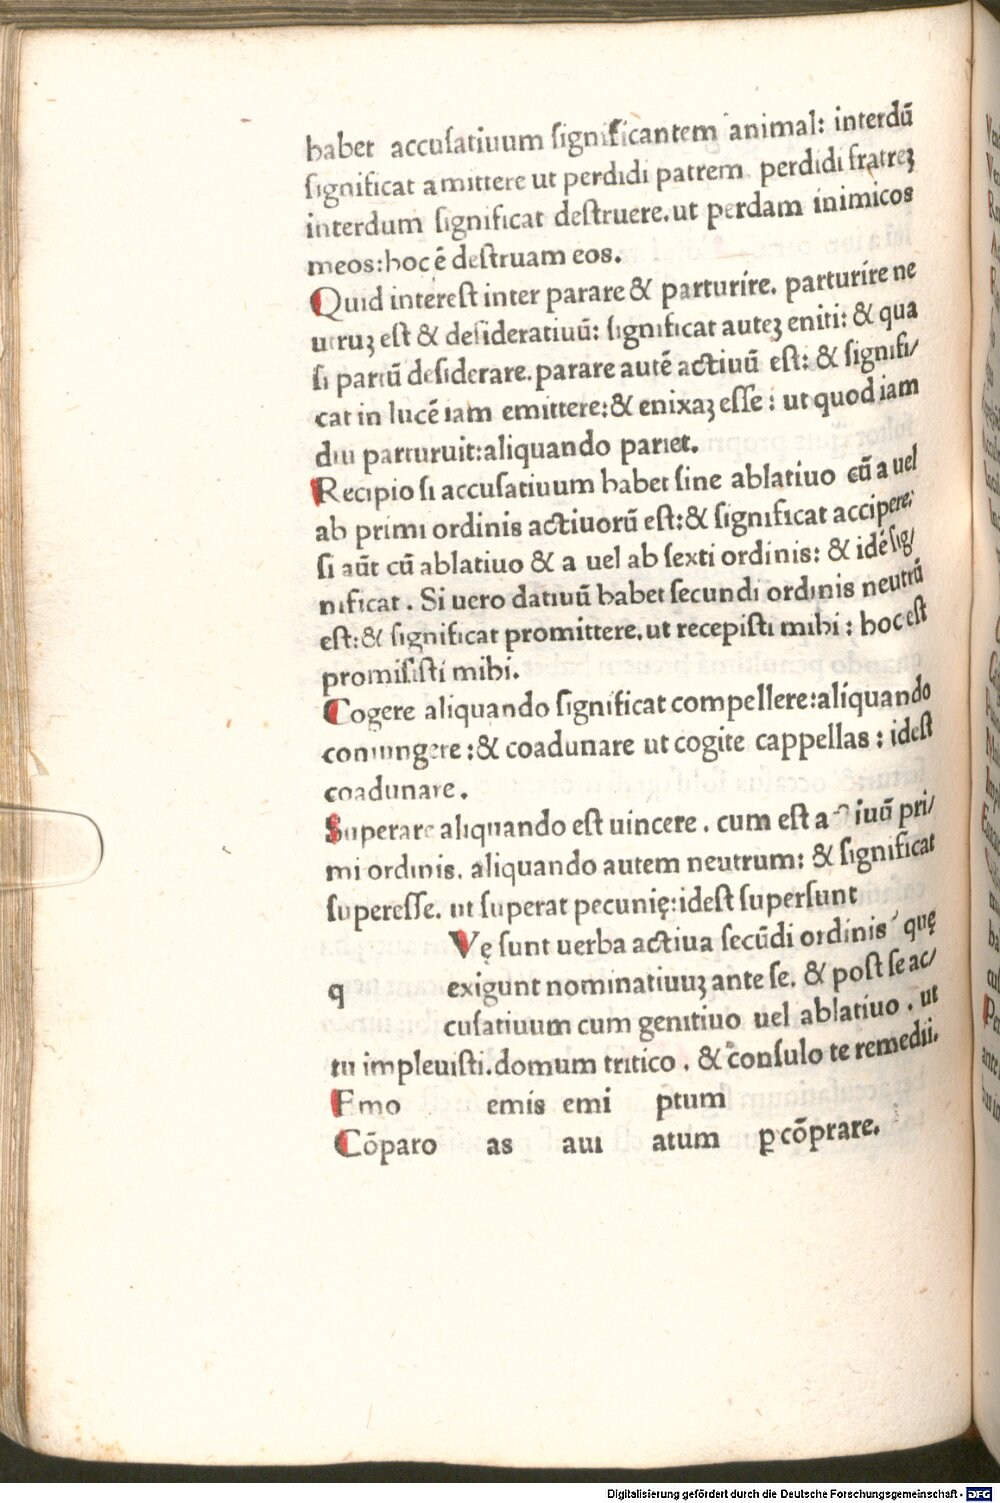 habet accusatiuum significantem animal: interdū
significat amittere ut perdidi patrem perdidi fratreꝫ
interdum significat destruere. ut perdam inimicos
meos: hoc ē destruam eos.
Quid interest inter parare & parturire. parturire ne
utruꝫ est & desideratiuū: significat auteꝫ eniti: & qua
si partū desiderare. parare autē actiuū est: & signifi/
cat in lucē iam emittere: & enixaꝫ esse: ut quod iam
diu parturuit: aliquando pariet.
Recipio si accusatiuum habet sine ablatiuo cū a uel
ab primi ordinis actiuorū est: & significat accipere:
si aūt cū ablatiuo & a uel ab sexti ordinis: & idē sig/
nificat. Si uero datiuū habet secundi ordinis neutrū
est: & significat promittere. ut recepisti mihi: hoc est
promisisti mihi.
Cogere aliquando significat compellere: aliquando
coniungere: & coadunare ut cogite cappellas: idest
coadunare.
Superare aliquando est uincere. cum est actiuū pri/
mi ordinis. aliquando autem neutrum: & significat
superesse. ut superat pecunię: idest supersunt
Vę sunt uerba actiua secūdi ordinis quę
q exigunt nominatiuuꝫ ante se. & post se ac/
cusatiuum cum genitiuo uel ablatiuo. ut
tu impleuisti. domum tritico. & consulo te remedii.
Emo emis emi ptum
Cōparo as aui atum ꝑ cōprare.
Digitalisierung gefördert durch die Deutsche Forschungsgemeinschaft - DFG